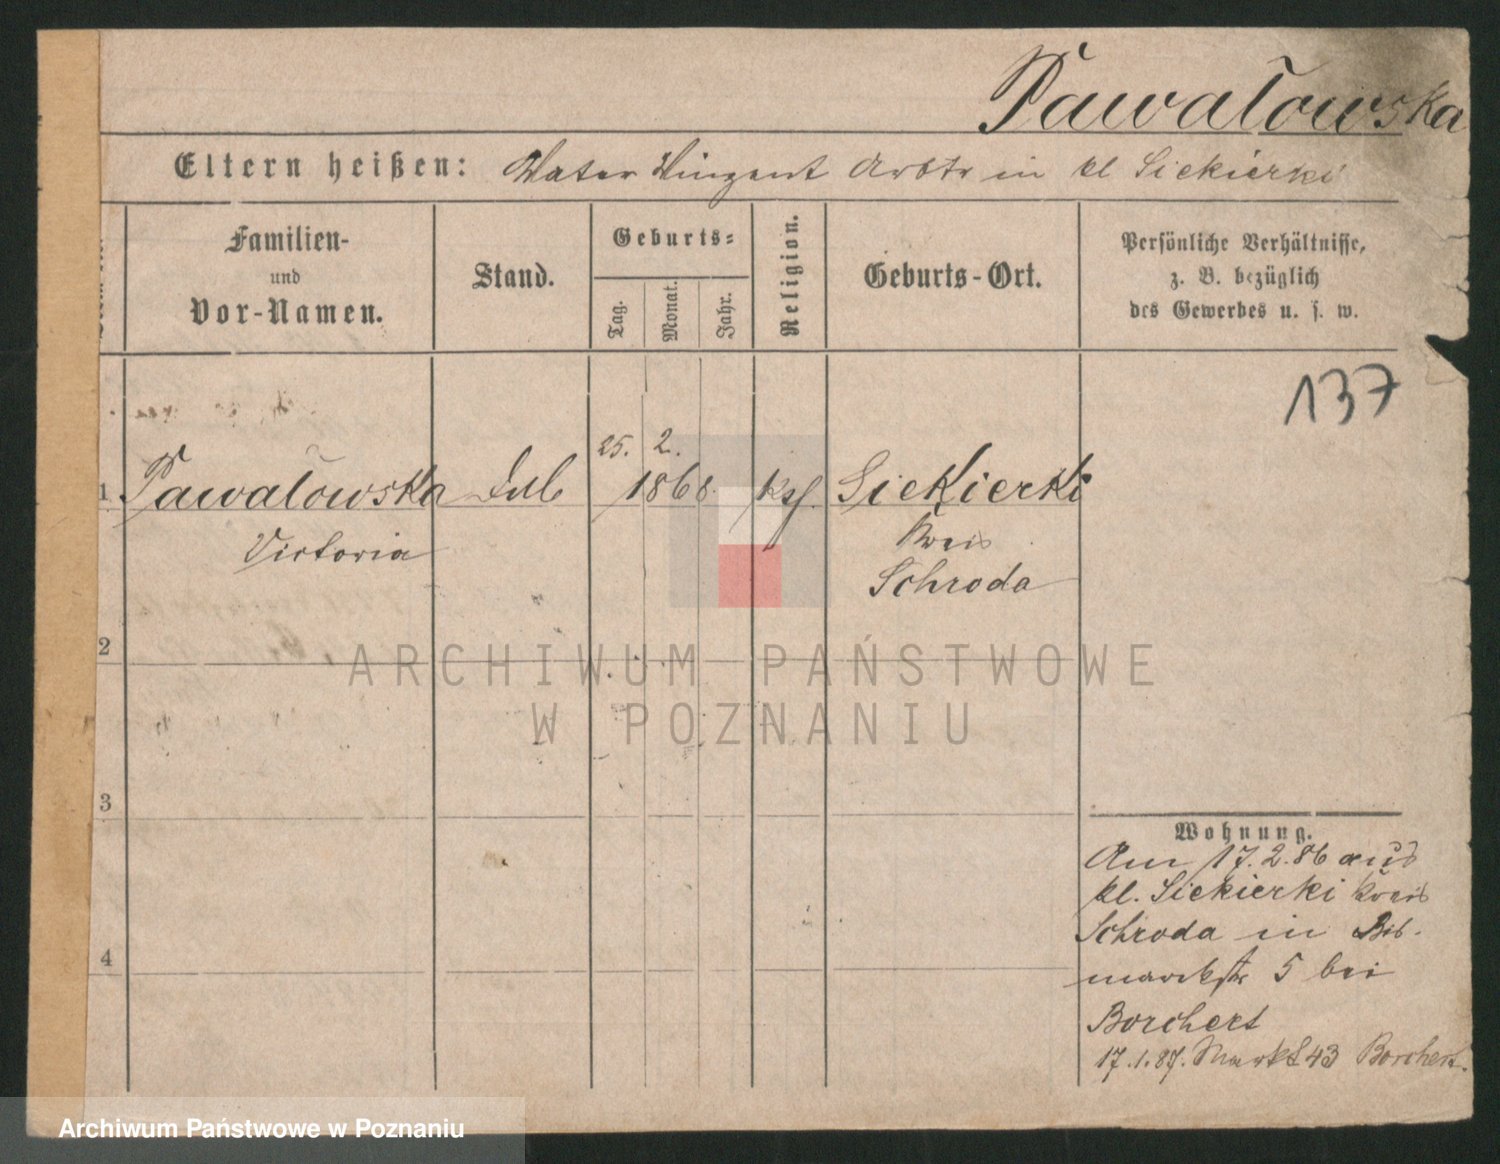 Pawałowska
Eltern heißen: Vater Vinzent Arbtr in kl Siekierki
Familien-
und
Vor-Namen.
Stand.
Geburts-
Tag.
Monat.
Jahr.
Religion.
Geburts-Ort.
Persönliche Verhältnisse,
z. B. bezüglich
des Gewerbes u. s. w.
137
25. 2.
1 Pawałowska 1868 kth. Siekierki
Victoria Kreis
Schroda
2
ARCHIWUM PAŃSTWOWE
W POZNANIU
3
Wohnung.
Am 17.2.86 aus
kl. Siekierki Kreis
Schroda in Bis-
marckstr 5 bei
Borchert
17.1.87. Markt 43 Borchert.
4
Archiwum Państwowe w Poznaniu